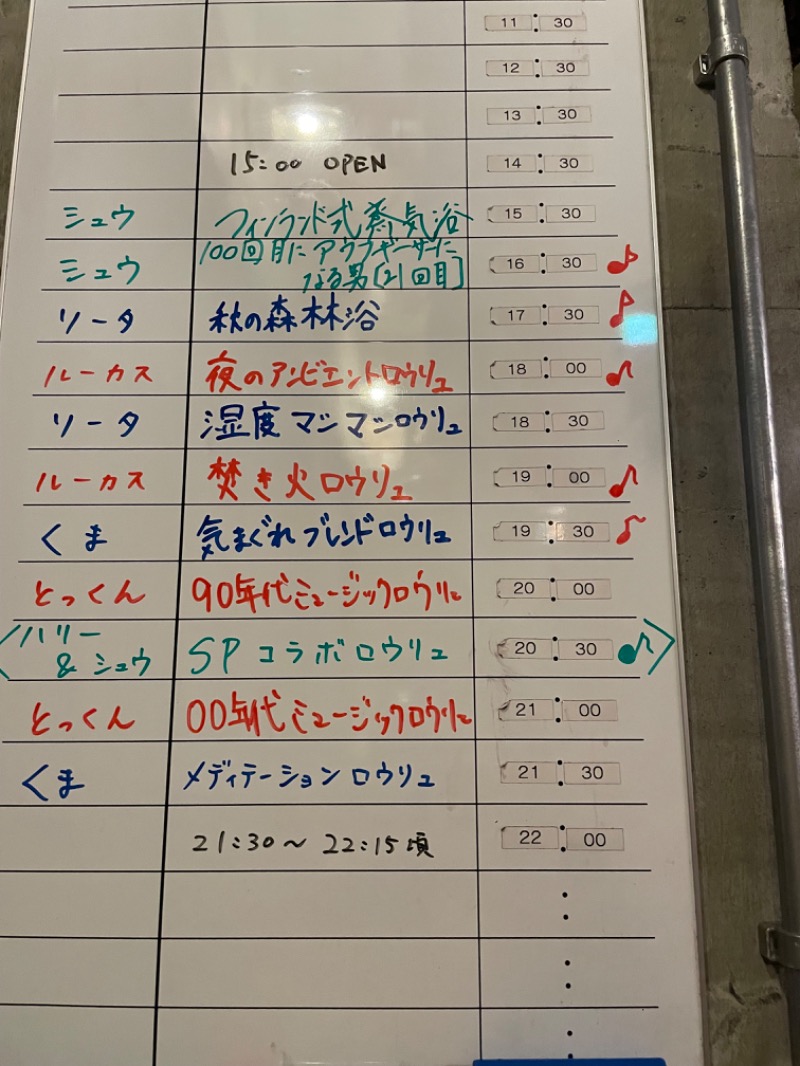 11:30
12:30
13:30
15:00 OPEN 14:30
シュウ フィンランド式蒸気浴 15:30
シュウ 100回目にアウフギーサーに
なる男[21回目] 16:30
ソータ 秋の森林浴 17:30
ルーカス 夜のアンビエントロウリュ 18:00
ソータ 湿度マシマシロウリュ 18:30
ルーカス 焚き火ロウリュ 19:00
くま 気まぐれブレンドロウリュ 19:30
とっくん 90年代ミュージックロウリュ 20:00
ハリー
&シュウ SPコラボロウリュ 20:30
とっくん 00年代ミュージックロウリュ 21:00
くま メディテーションロウリュ 21:30
21:30〜22:15頃 22:00